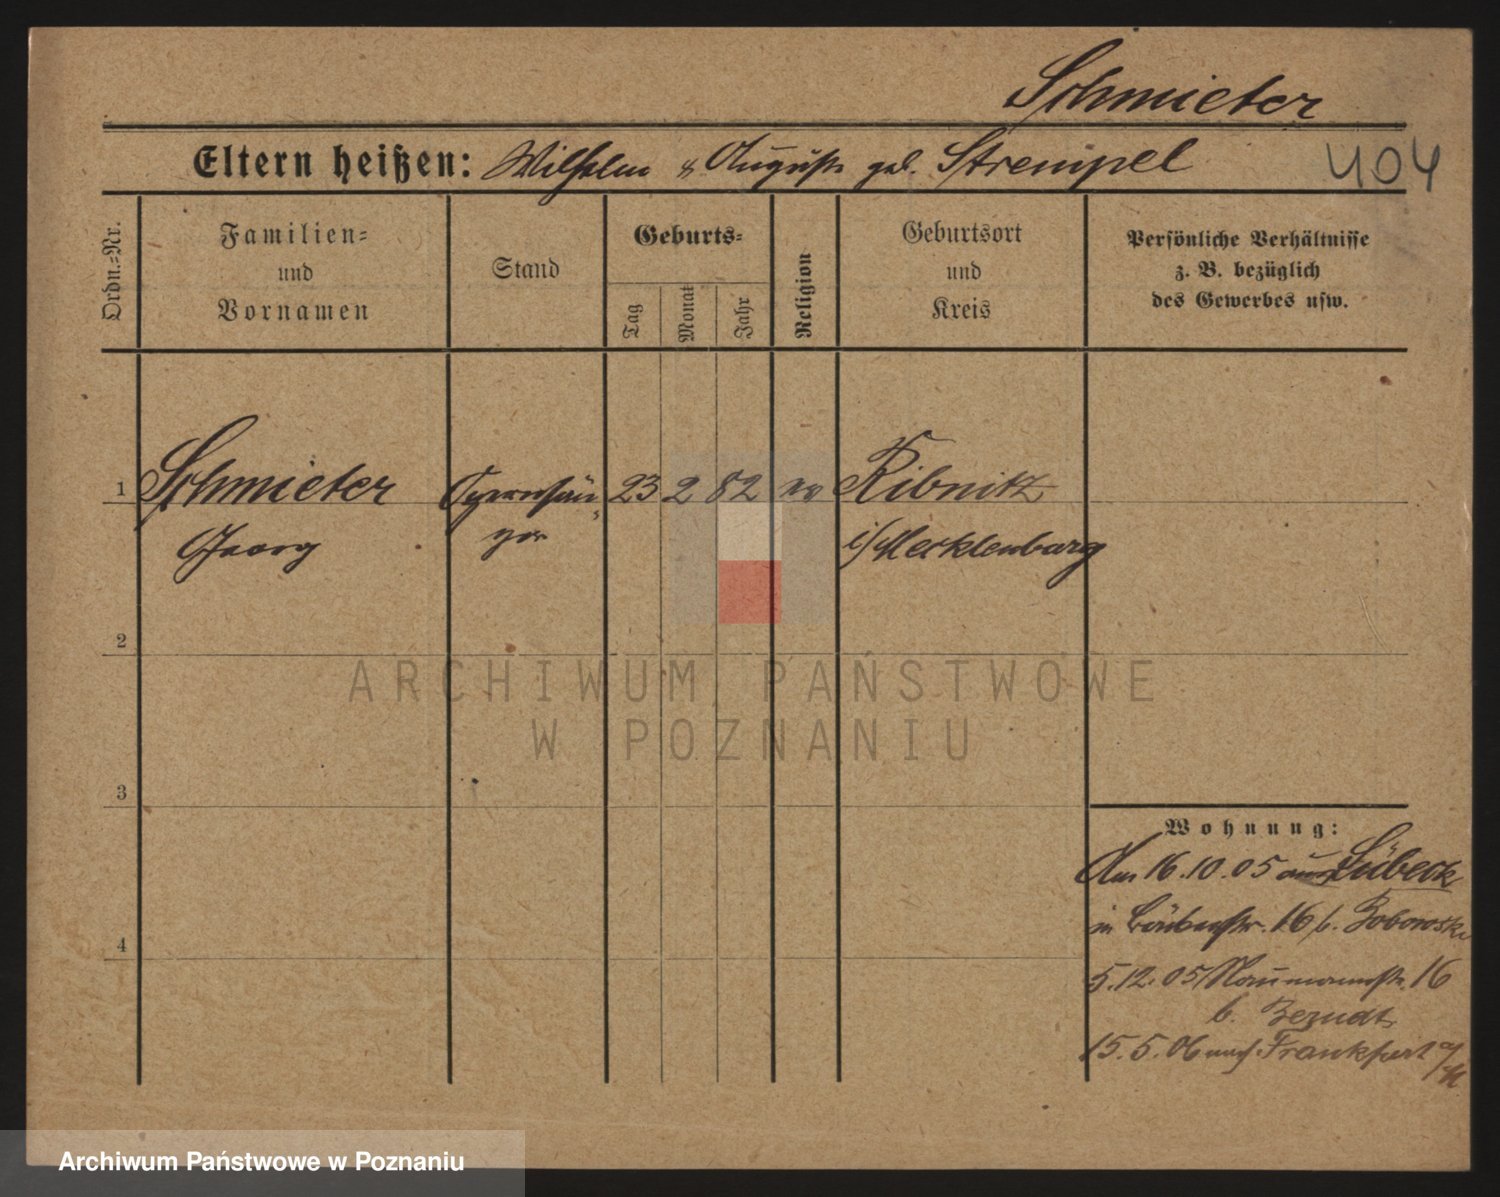 Schmieter
Eltern heißen: Wilhelm & Auguste geb. Strempel
404
Ordn.-Nr.
Familien-
und
Vornamen
Stand
Geburts-
Tag
Monat
Jahr
Religion
Geburtsort
und
Kreis
Persönliche Verhältnisse
z. B. bezüglich
des Gewerbes usw.
1 Schmieter Opernsän- 23 2 82 ev Ribnitz
Georg ger i/Mecklenburg
2
3
4
Wohnung:
Am 16.10.05 aus Lübeck
in 16 b. Boborowski
5.12.05 Naumannstr. 16
b.
15.5.06 nach Frankfurt a/M
ARCHIWUM PAŃSTWOWE
W POZNANIU
Archiwum Państwowe w Poznaniu